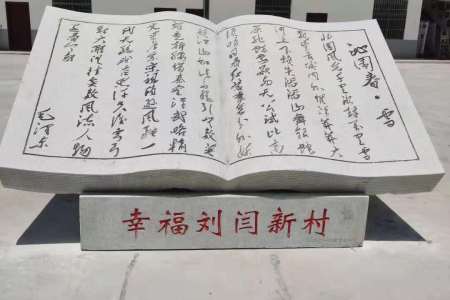 沁园春·雪
北国风光千里冰封万里雪
飘望长城内外惟余莽莽大
河上下顿失滔滔山舞银蛇
原驰蜡象欲与天公试比高
须晴日看红装素裹分外妖
娆江山如此多娇引无数英
雄竞折腰惜秦皇汉武略输
文采唐宗宋祖稍逊风骚一
代天骄成吉思汗只识弯弓
射大雕俱往矣数风流人物
还看今朝
毛泽东
幸福刘闫新村